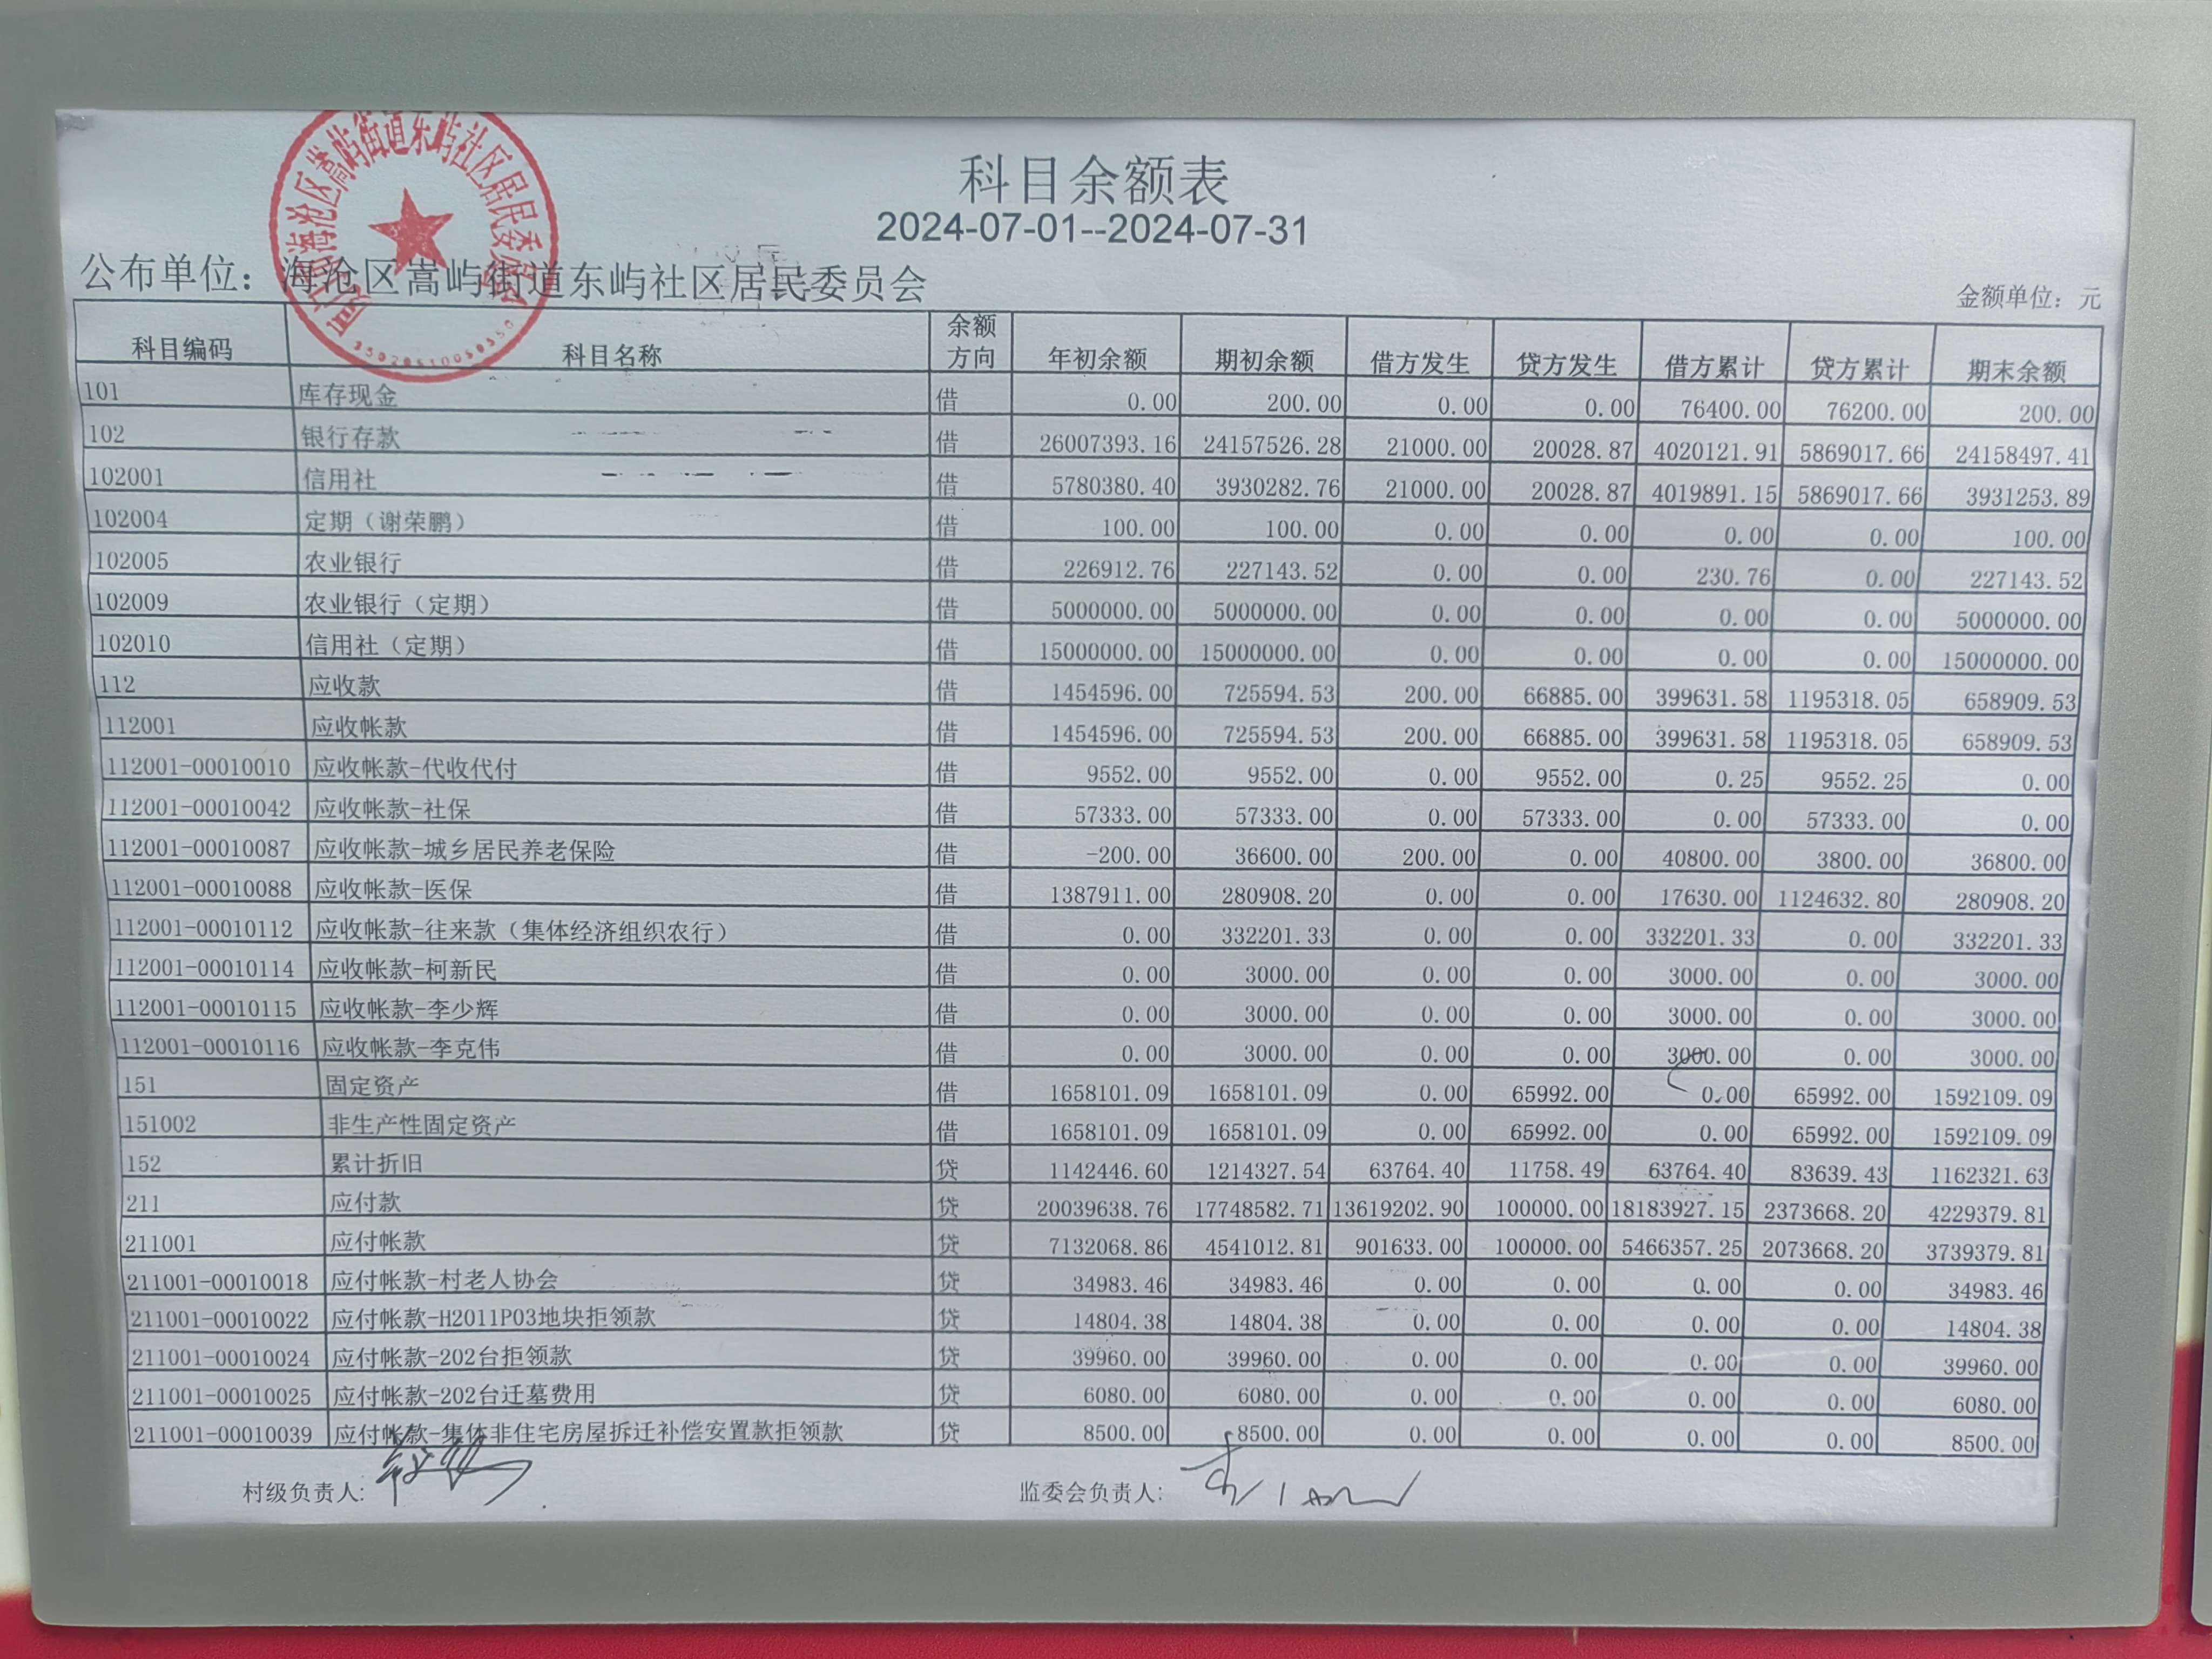 科目余额表
2024-07-01--2024-07-31
公布单位：海沧区嵩屿街道东屿社区居民委员会 金额单位：元
科目编码 科目名称 余额方向 年初余额 期初余额 借方发生 贷方发生 借方累计 贷方累计 期末余额
101 库存现金 借 0.00 200.00 0.00 0.00 76400.00 76200.00 200.00
102 银行存款 借 26007393.16 24157526.28 21000.00 20028.87 4020121.91 5869017.66 24158497.41
102001 信用社 借 5780380.40 3930282.76 21000.00 20028.87 4019891.15 5869017.66 3931253.89
102004 定期（谢荣鹏） 借 100.00 100.00 0.00 0.00 0.00 0.00 100.00
102005 农业银行 借 226912.76 227143.52 0.00 0.00 230.76 0.00 227143.52
102009 农业银行（定期） 借 5000000.00 5000000.00 0.00 0.00 0.00 0.00 5000000.00
102010 信用社（定期） 借 15000000.00 15000000.00 0.00 0.00 0.00 0.00 15000000.00
112 应收款 借 1454596.00 725594.53 200.00 66885.00 399631.58 1195318.05 658909.53
112001 应收帐款 借 1454596.00 725594.53 200.00 66885.00 399631.58 1195318.05 658909.53
112001-00010010 应收帐款-代收代付 借 9552.00 9552.00 0.00 9552.00 0.25 9552.25 0.00
112001-00010042 应收帐款-社保 借 57333.00 57333.00 0.00 57333.00 0.00 57333.00 0.00
112001-00010087 应收帐款-城乡居民养老保险 借 -200.00 36600.00 200.00 0.00 40800.00 3800.00 36800.00
112001-00010088 应收帐款-医保 借 1387911.00 280908.20 0.00 0.00 17630.00 1124632.80 280908.20
112001-00010112 应收帐款-往来款（集体经济组织农行） 借 0.00 332201.33 0.00 0.00 332201.33 0.00 332201.33
112001-00010114 应收帐款-柯新民 借 0.00 3000.00 0.00 0.00 3000.00 0.00 3000.00
112001-00010115 应收帐款-李少辉 借 0.00 3000.00 0.00 0.00 3000.00 0.00 3000.00
112001-00010116 应收帐款-李克伟 借 0.00 3000.00 0.00 0.00 3000.00 0.00 3000.00
151 固定资产 借 1658101.09 1658101.09 0.00 65992.00 0.00 65992.00 1592109.09
151002 非生产性固定资产 借 1658101.09 1658101.09 0.00 65992.00 0.00 65992.00 1592109.09
152 累计折旧 贷 1142446.60 1214327.54 63764.40 11758.49 63764.40 83639.43 1162321.63
211 应付款 贷 20039638.76 17748582.71 13619202.90 100000.00 18183927.15 2373668.20 4229379.81
211001 应付帐款 贷 7132068.86 4541012.81 901633.00 100000.00 5466357.25 2073668.20 3739379.81
211001-00010018 应付帐款-村老人协会 贷 34983.46 34983.46 0.00 0.00 0.00 0.00 34983.46
211001-00010022 应付帐款-H2011P03地块拒领款 贷 14804.38 14804.38 0.00 0.00 0.00 0.00 14804.38
211001-00010024 应付帐款-202台拒领款 贷 39960.00 39960.00 0.00 0.00 0.00 0.00 39960.00
211001-00010025 应付帐款-202台迁墓费用 贷 6080.00 6080.00 0.00 0.00 0.00 0.00 6080.00
211001-00010039 应付帐款-集体非住宅房屋拆迁补偿安置款拒领款 贷 8500.00 8500.00 0.00 0.00 0.00 0.00 8500.00
村级负责人： 监委会负责人：